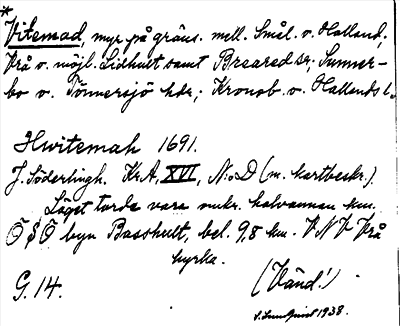 *
Vitemad, myr på gräns. mell. Smål. o. Halland,
Vrå o. möjl. Lidhult samt Breared sr, Sunner-
bo o. Tönnersjö hdr; Kronob. o. Hallands l.
Hwitemah 1691.
J. Söderlingh. KrA, XVI, N:o D (m. kartbeskr.).
Läget torde vara unkr. halvannan km.
Ö S Ö byn Basshult, bel. 9,8 km. V N V Vrå
kyrka.
G. 14.
(Vänd!)
1938.